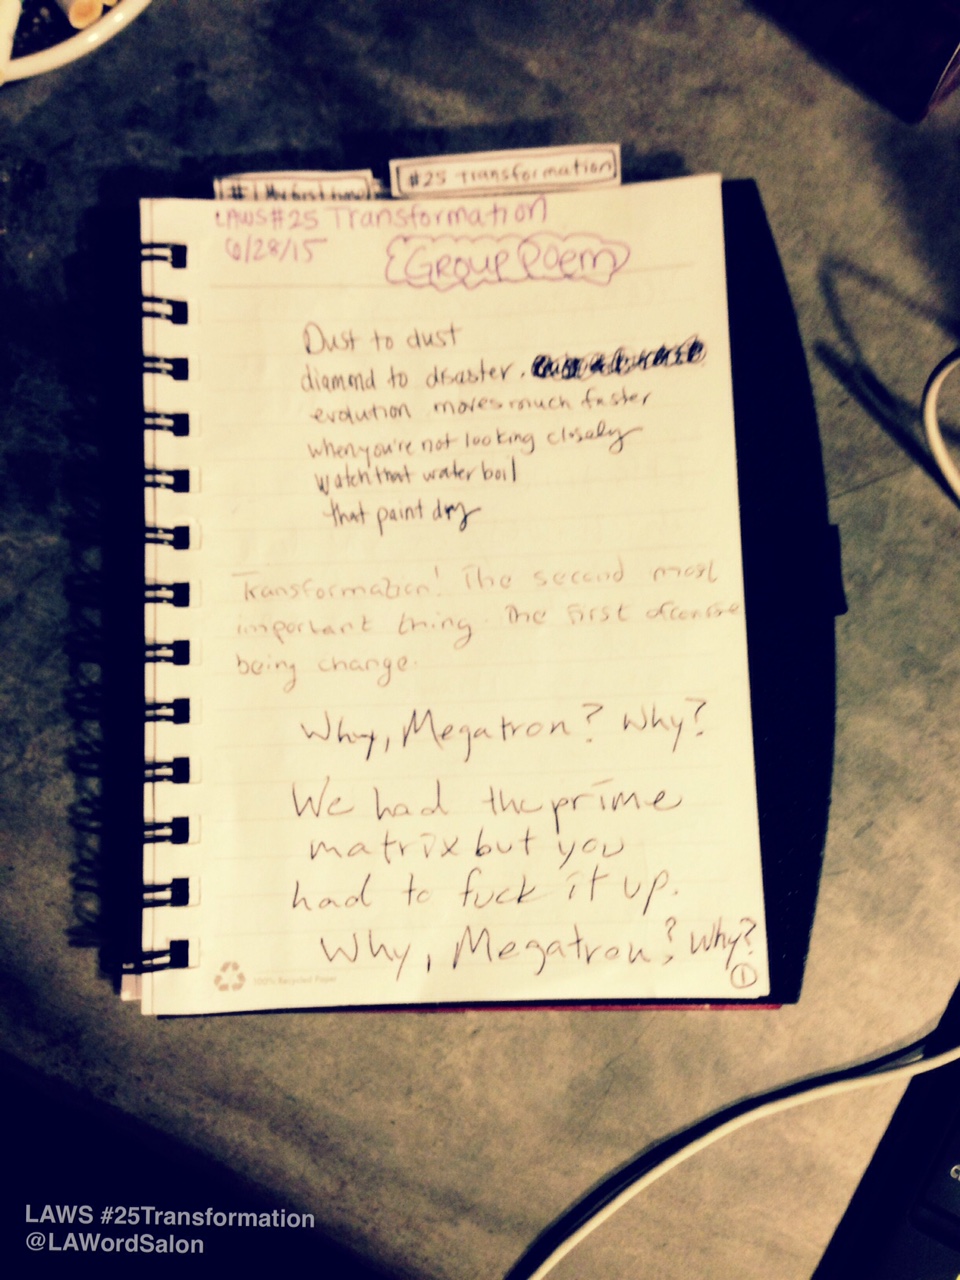 #1 My first time
#25 Transformation
LAWS #25 Transformation
6/28/15
Group Poem
Dust to dust
diamond to disaster.
evolution moves much faster
when you're not looking closely
watch that water boil
that paint dry
Transformation! The second most
important thing. The first ofcourse
being change.
Why, Megatron? Why?
We had the prime
matrix but you
had to fuck it up.
Why, Megatron? Why?
1
100% Recycled Paper
LAWS #25Transformation
@LAWordSalon